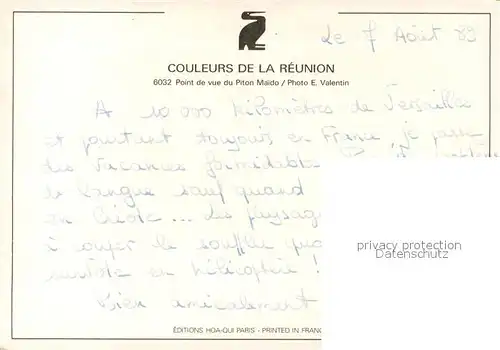 Le 7 Août 89
COULEURS DE LA RÉUNION
6032 Point de vue du Piton Maïdo / Photo E. Valentin
A 10 000 kilomètres de Versailles
et pourtant toujours en France, je passe
des vacances formidables
de langue sauf quand
en Créole... des paysag
à couper le souffle
en hélicoptère !
Bien amicalement
privacy protection
Datenschutz
ÉDITIONS HOA-QUI PARIS - PRINTED IN FRANC